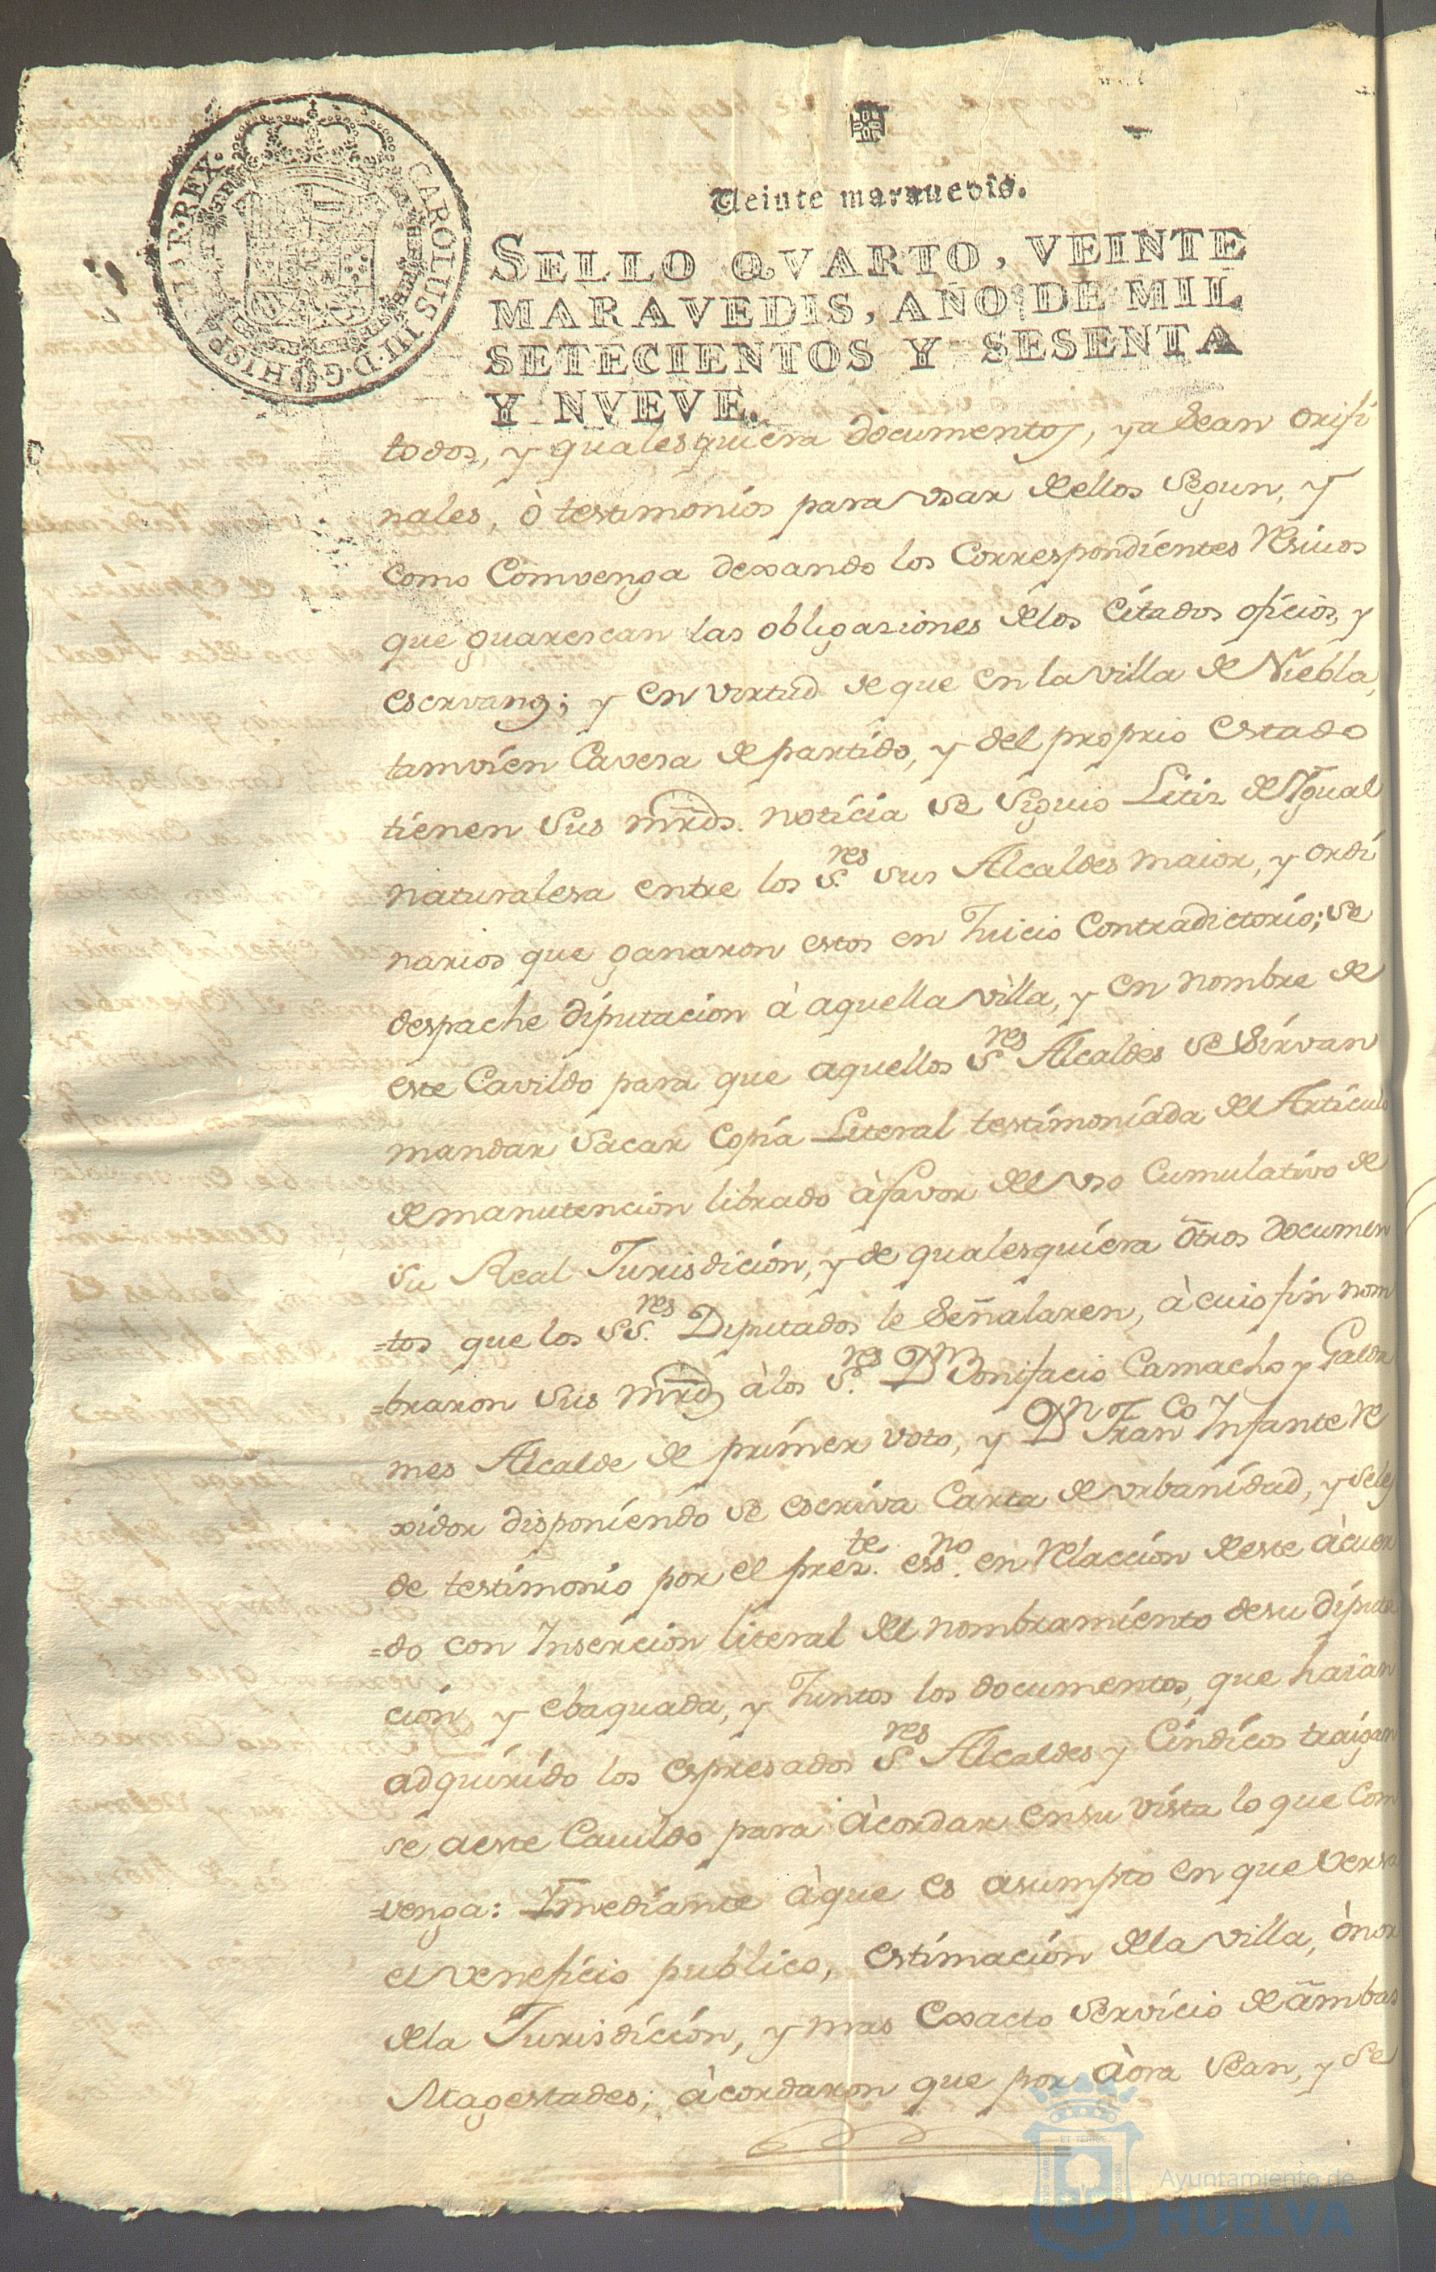 CAROLUS III·D·G·HISPANIAR·REX·
Veinte marauedis.
SELLO QVARTO, VEINTE
MARAVEDIS, AÑO DE MIL
SETECIENTOS Y SESENTA
Y NVEVE.
todos, y qualesquiera documentos, ya sean orifi
nales, ò testimonios para vsar dellos segun, y
como Comvenga dexando los Correspondientes Resiuos
que guarescan las obligaziones delos citados oficios, y
escrvanos; y en virtud de que en la villa de Niebla,
tamvien Cavesa de partido, y del proprio estado
tienen sus mrds. noticia se siguio Litis de Ygual
naturalesa entre los S.res sus Alcaldes maior, y ordi
narios que ganaron estos en Juicio Contradictorio; se
despache diputacion à aquella villa, y en nombre de
este Cavildo para que aquellos S.res Alcaldes se sirvan
mandar sacar Copia Literal testimoniada del Articulo
de manutencion librado à favor del vso Cumulativo de
su Real Jurisdicion, y de qualesquiera otros documen
=tos que los SS.res Diputados le señalaren, à cuio fin nom
=braron sus mrds à los S.res Dn Bonifacio Camacho y Galda
mes Alcalde de primer voto, y Dn Franco Infante Re
xidor disponiendo se escriva Carta de vrbanidad, y seles
de testimonio por el presте. essno. en Relaccion deste àcuer
=do con Insercion literal del nombramiento de su diputa
cion, y ebaquada, y Juntos los documentos, que haian
adquirido los espresados S.res Alcaldes y Cindicos traigan
se a este Cavildo para àcordar en su vista lo que Com
=venga: Ymediante à que es asumpto en que versa
el veneficio publico, estimacion dela villa, ònor
dela Jurisdiccion, y mas Exacto servicio de ambas
Magestades; àcordaron que por àora sean, y se
Ayuntamiento de
HUELVA